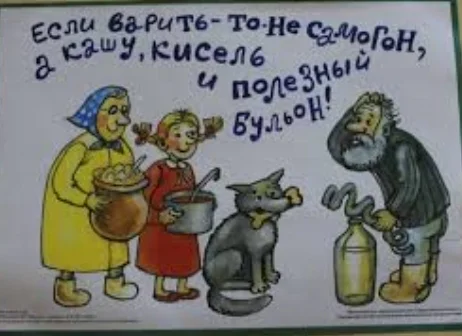 Если варить-то не самогон,
а кашу, кисель
и полезный
бульон!